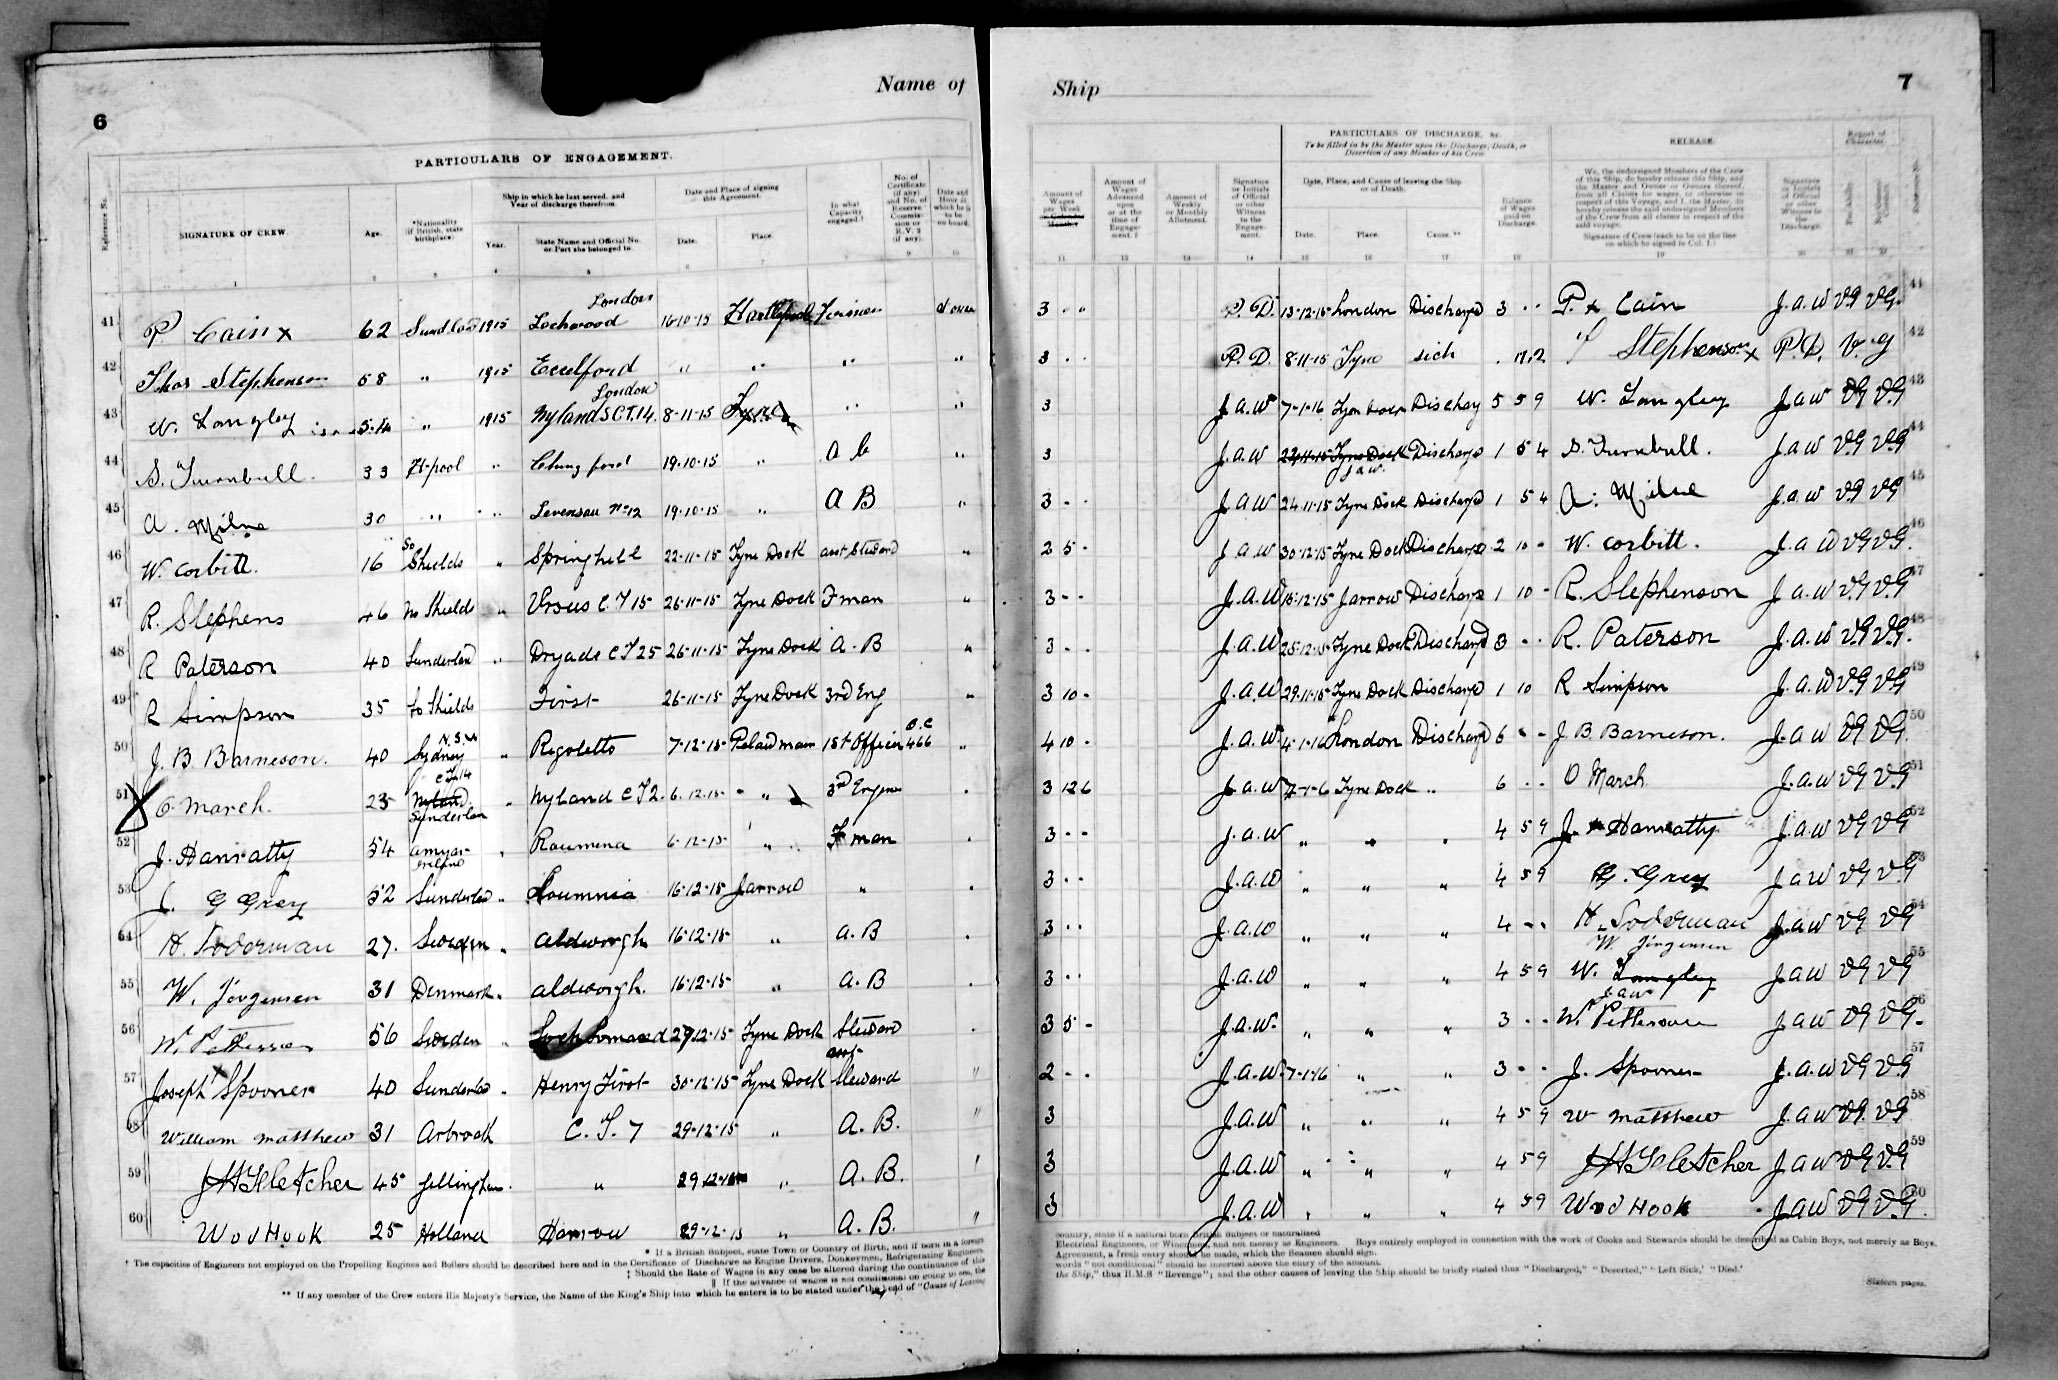 6
Name of
PARTICULARS OF ENGAGEMENT.
Reference No.
SIGNATURE OF CREW.
Age.
*Nationality (if British, state birthplace).
Ship in which he last served, and Year of discharge therefrom.
Year.
State Name and Official No. or Port she belonged to.
Date and Place of signing this Agreement.
Date.
Place.
In what Capacity engaged.†
No. of Certificate (if any) and No. of Reserve Commission or R.V. 2 (if any).
Date and Hour at which he is to be on board.
1 2 3 4 5 6 7 8 9 10
London
41 P Cain x 62 Sunderland 1915 Lockwood 16-10-15 Hartlepool Fireman
42 Thos Stephenson 58 " 1915 Eccelford " " " "
London
43 W. Langley 54 " 1915 Nyland S C T. 14. 8-11-15 Tyne " "
44 S. Turnbull. 33 H-pool " Chingford 19-10-15 " A B "
45 A. Milne 30 " " Levensau No 12 19-10-15 " A B "
So
46 W. Corbitt. 16 Shields " Springhill 22-11-15 Tyne Dock asst Steward "
47 R. Stephens 46 No Shields " Ursus C T 15 26-11-15 Tyne Dock F man "
48 R Paterson 40 Sunderland " Dryade C T 25 26-11-15 Tyne Dock A. B "
49 R Simpson 35 So Shields First 26-11-15 Tyne Dock 3rd Eng "
N. S. W O. C
50 J. B. Barneson. 40 Sydney " Rigoletto 7-12-15 Pelaw main 1st Officer 466 "
C T 14
51 O March. 23 Nyland Sunderlan " Nyland C T 2. 6.12.15 " " 3rd Engine
52 J. Hanratty 54 Ireland " Roumena 6-12-15 " F man
53 J. G Grey 52 Sunderland " Roumnia 16-12-15 Jarrow "
54 H. Soderman 27. Sweden " Aldworgh 16-12-15 " A. B
55 W. Jörgensen 31 Denmark " Aldworgh. 16-12-15 " A. B
56 W. Petterson 56 Sweden " Loch Lomand 29-12-15 Tyne Dock Steward
asst
57 Joseph Spooner 40 Sunderland " Henry First 30-12-15 Tyne Dock Steward "
58 William Matthew 31 Arbroath C. T. 7 29-12-15 " A. B. "
59 J H Fletcher 45 Gillingham. " 29-12-15 " A. B.
60 W o d Hook 25 Holland Harrow 29-12-15 " A. B. "
* If a British Subject, state Town or Country of Birth, and if born in a foreign
† The capacities of Engineers not employed on the Propelling Engines and Boilers should be described here and in the Certificate of Discharge as Engine Drivers, Donkeymen, Refrigerating Engineers,
‡ Should the Rate of Wages in any case be altered during the continuance of this
|| If the advance of wages is not conditional on going to sea, the
** If any member of the Crew enters His Majesty's Service, the Name of the King's Ship into which he enters is to be stated under the head of "Cause of Leaving
Ship
7
PARTICULARS OF DISCHARGE, &c.
To be filled in by the Master upon the Discharge, Death, or Desertion of any Member of his Crew
RELEASE.
Report of Character.
Amount of Wages per Week
Amount of Wages Advanced upon or at the time of Engagement.‡
Amount of Weekly or Monthly Allotment.
Signature or Initials of Official or other Witness to the Engagement.
Date, Place, and Cause of leaving the Ship or of Death.
Date.
Place.
Cause.**
Balance of Wages paid on Discharge.
We, the undersigned Members of the Crew of this Ship, do hereby release this Ship, and the Master and Owner or Owners thereof, from all Claims for wages, or otherwise in respect of this Voyage, and I, the Master, do hereby release the said undersigned Members of the Crew from all claims in respect of the said voyage.
Signature of Crew (each to be on the line on which he signed in Col. 1.)
Signature or Initials of Official or other Witness to the Discharge.
Reference No.
11 12 13 14 15 16 17 18 19 20 21 22
3 - - P. D. 13-12-15 London Discharged 3 - - P. x Cain J. a. W V.G V.G. 41
3 - - P. D. 8-11-15 Tyne sick . 17.2 Stephenson x P. D. V. g 42
3 J. a. W 7-1-16 Tyne Dock Discharg 5 5 9 W. Langley J a W V.G V.G 43
3 J. a. W 22-11-15 Tyne Dock Discharge 1 5 4 S. Turnbull. J a W V.G V.G 44
J a W
3 - - J a W 24-11-15 Tyne Dock Discharged 1 5 4 A. Milne J. a W V.G V.G 45
2 5 - J a W 30-12-15 Tyne Dock Discharged 2 10 - W. Corbitt. J. a W V.G V.G. 46
3 - - J. a. W 16-12-15 Jarrow Discharge 1 10 - R. Stephenson J. a. W V.G V.G 47
3 - - J. a. W 25-12-15 Tyne Dock Discharged 3 - - R. Paterson J. a. W V.G V.G. 48
3 10 - J. a. W 29-11-15 Tyne Dock Discharged 1 10 R Simpson J. a. W V.G V.G 49
4 10 - J. a. W. 4-1-16 London Discharged 6 - - J. B. Barneson. J. a W V.G V.G. 50
3 12 6 J. a. W 7-1-6 Tyne Dock " 6 - - O March J. a W V.G V.G 51
3 - - J. a. W " " " 4 5 9 J. Hanratty J. a W V.G V.G 52
3 - - J. a. W " " " 4 5 9 G. Grey J a W V.G V.G 53
3 - - J. a. W " " " 4 - - H. Soderman J a W V.G V.G 54
W. Jörgensen
3 - - J. a. W " " " 4 5 9 W. Langley J a W V.G V.G 55
J. a W
3 5 - J. a. W. " " " 3 - - W. Petterson J a W V.G V.G. 56
2 - - J. a. W. 7-1-16 " " 3 - - J. Spooner J. a. W V.G V.G 57
3 J. a. W " " " 4 5 9 W Matthew J. a W V.G V.G 58
3 J. a. W " " " 4 5 9 J H Fletcher J a W V.G V.G 59
3 J. a. W " " " 4 5 9 W o d Hook J a W V.G V.G. 60
country, state if a natural born British Subject or naturalised
Electrical Engineers, or Winchmen, and not merely as Engineers. Boys entirely employed in connection with the work of Cooks and Stewards should be described as Cabin Boys, not merely as Boys.
Agreement, a fresh entry should be made, which the Seamen should sign.
words "not conditional" should be inserted above the entry of the amount.
the Ship," thus H.M.S "Revenge"; and the other causes of leaving the Ship should be briefly stated thus "Discharged," "Deserted," "Left Sick,' 'Died.'
Sixteen pages.